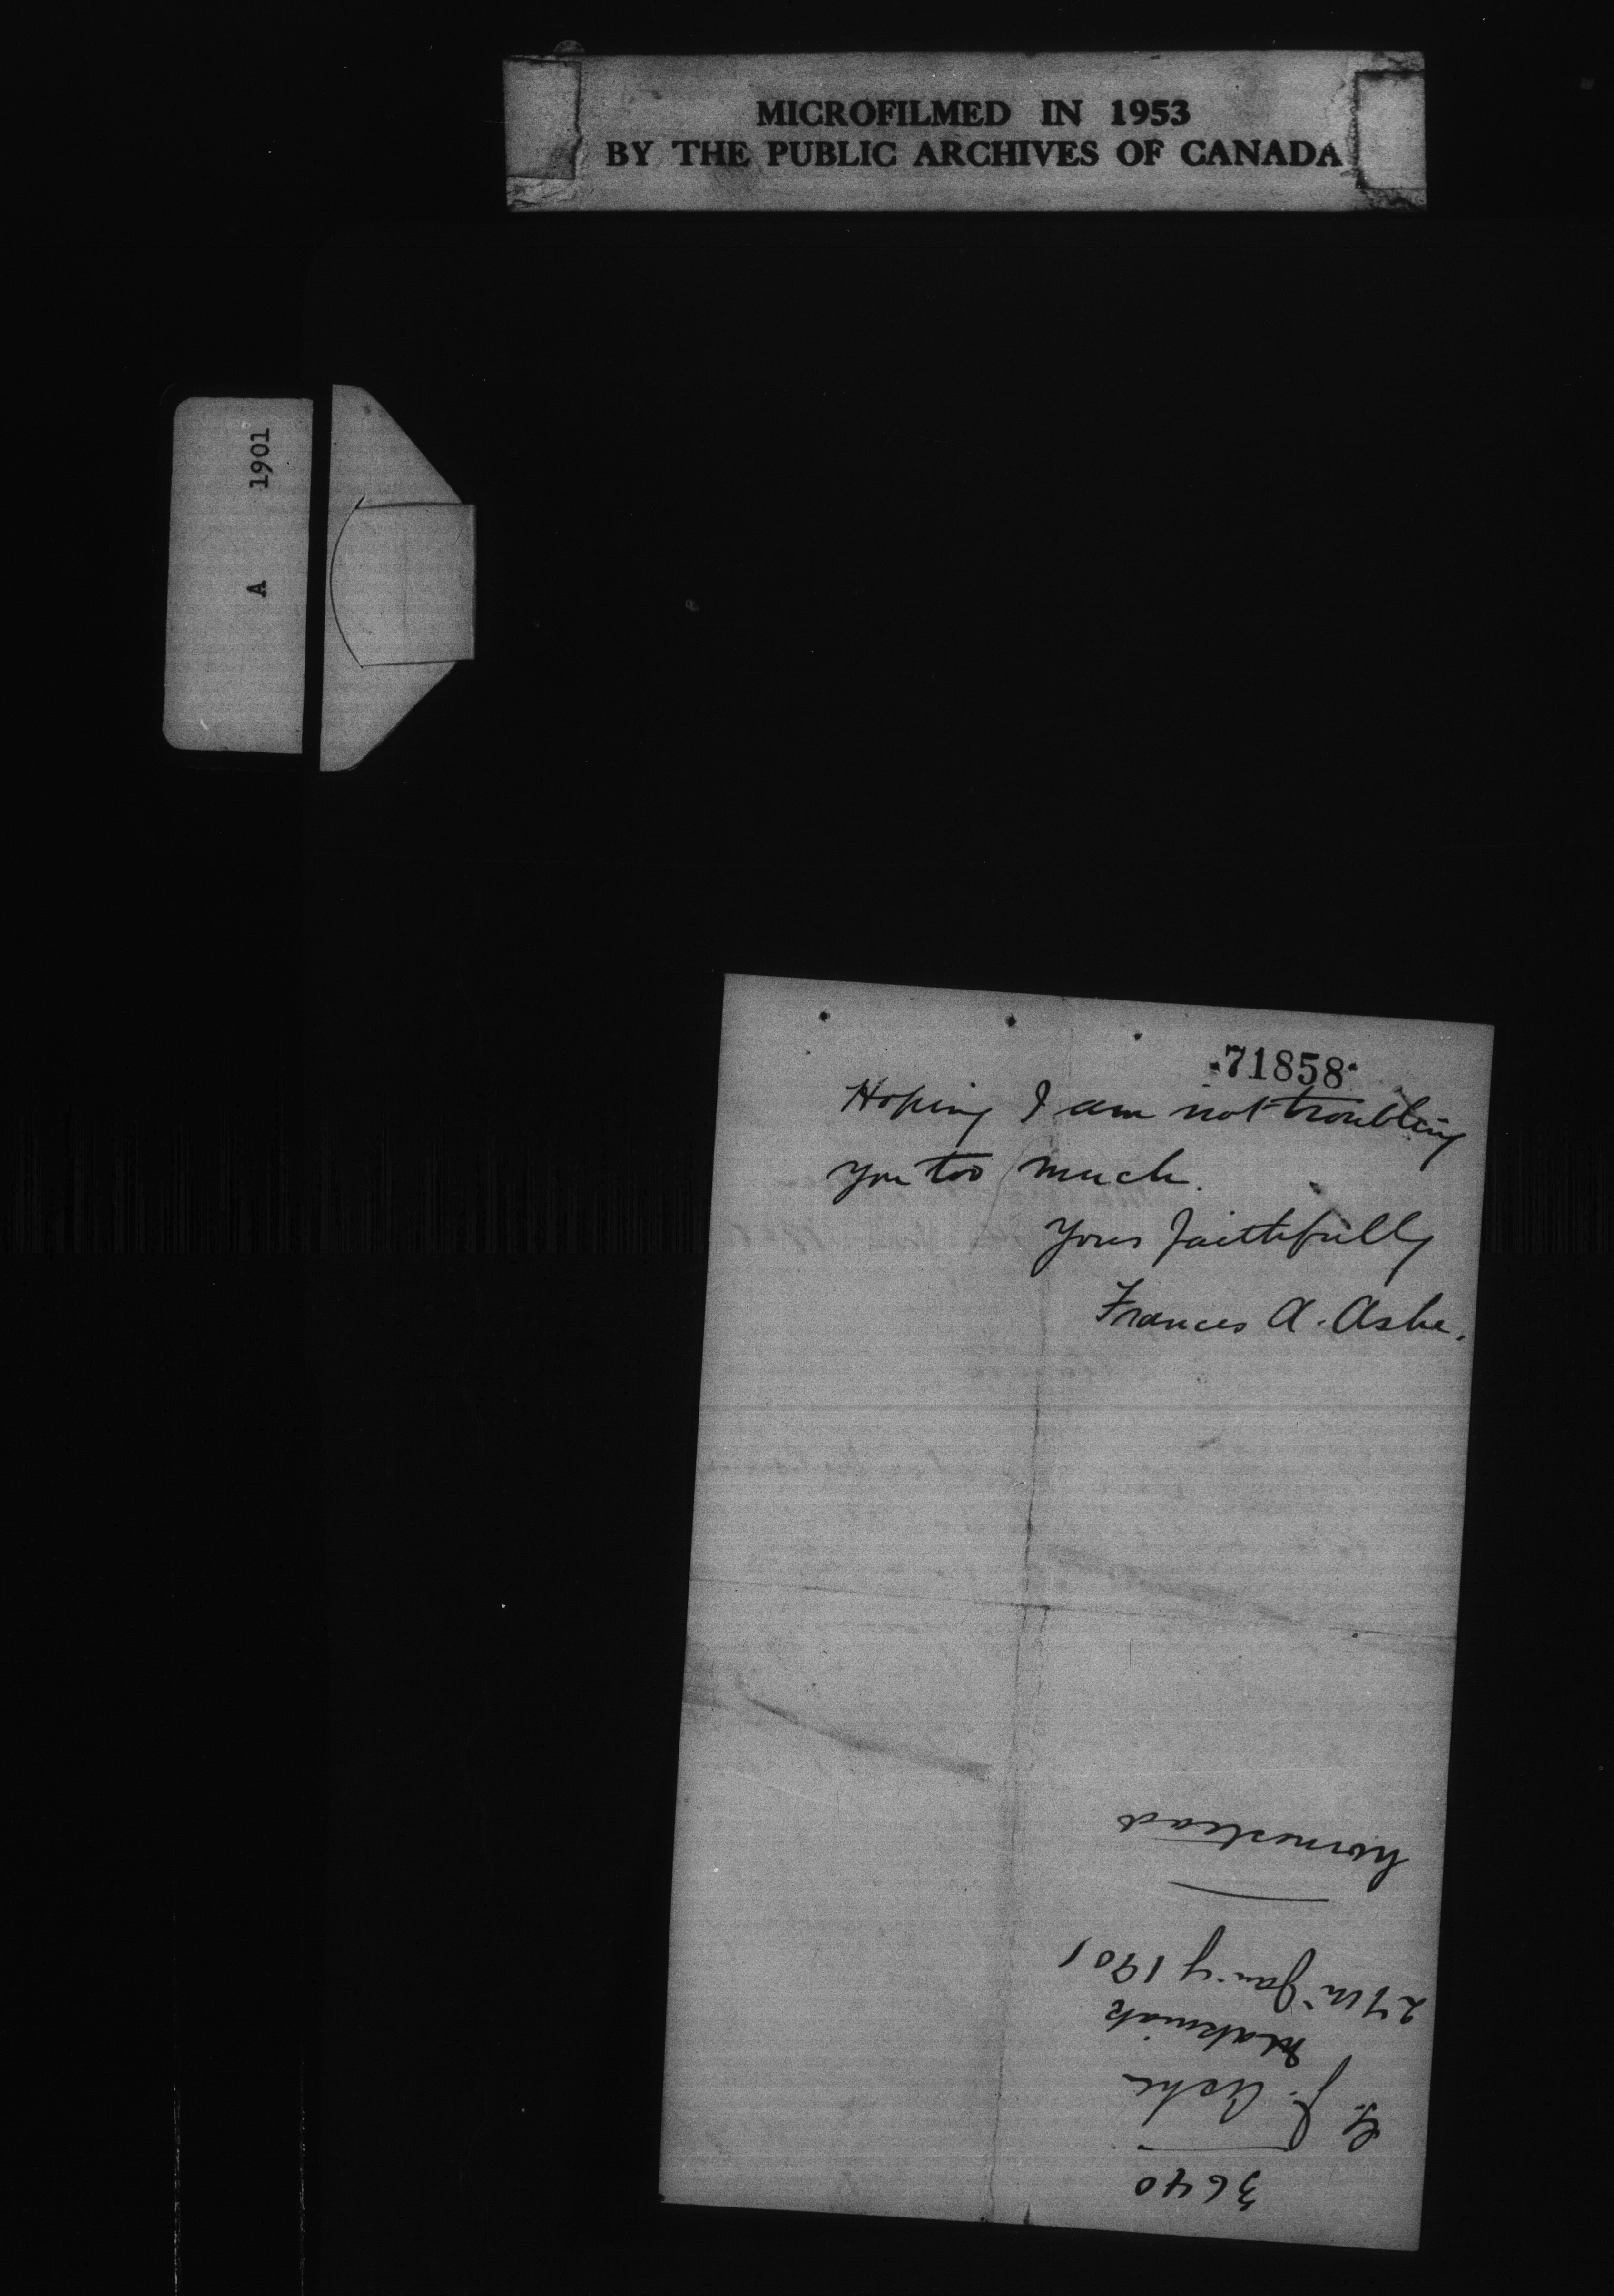 MICROFILMED IN 1953
BY THE PUBLIC ARCHIVES OF CANADA
A 1901
71858
Hoping I am not troubling
you too much.
Yours faithfully
Frances A. Ashe.
3640
G. J. Ashe
27th Jan'y 1901
homestead